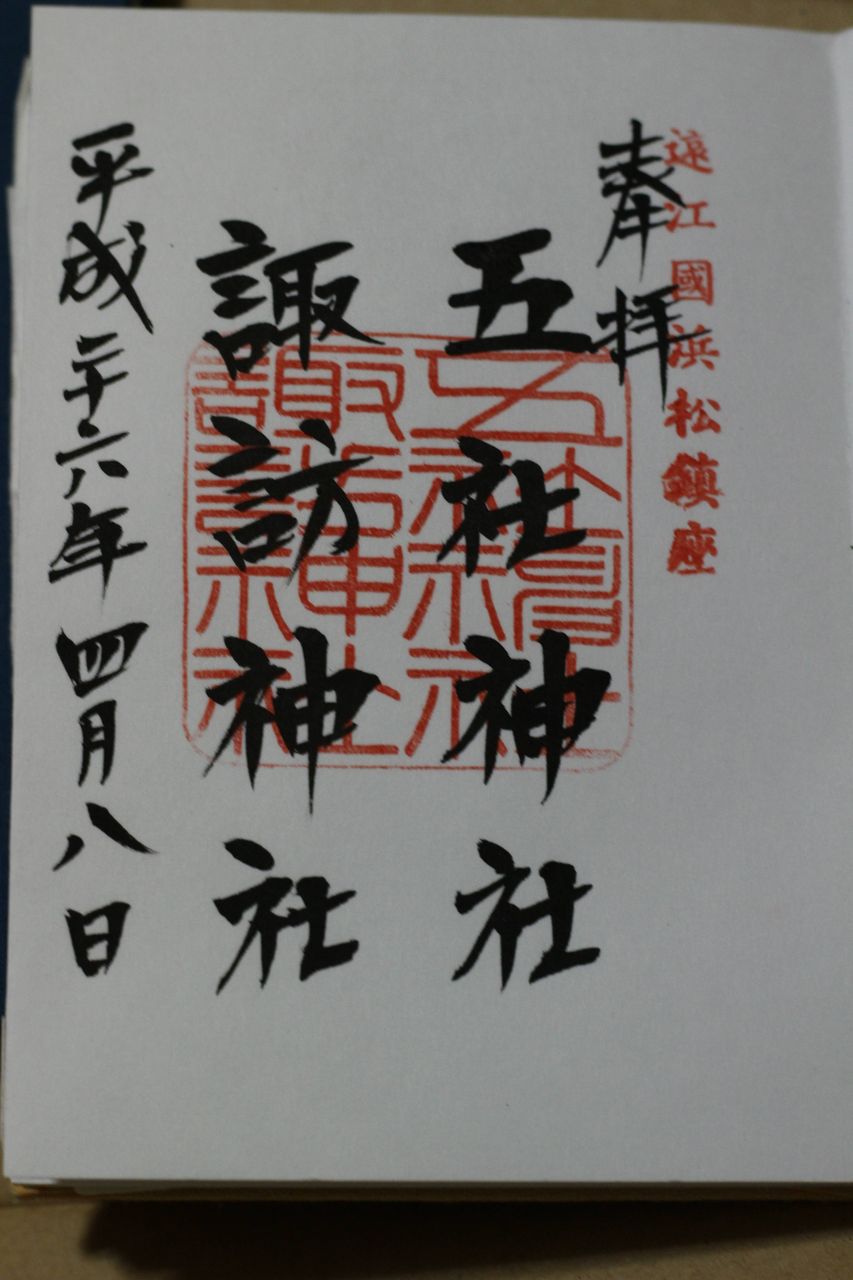 遠江國浜松鎮座
奉拝
五社神社
諏訪神社
平成二十六年四月八日